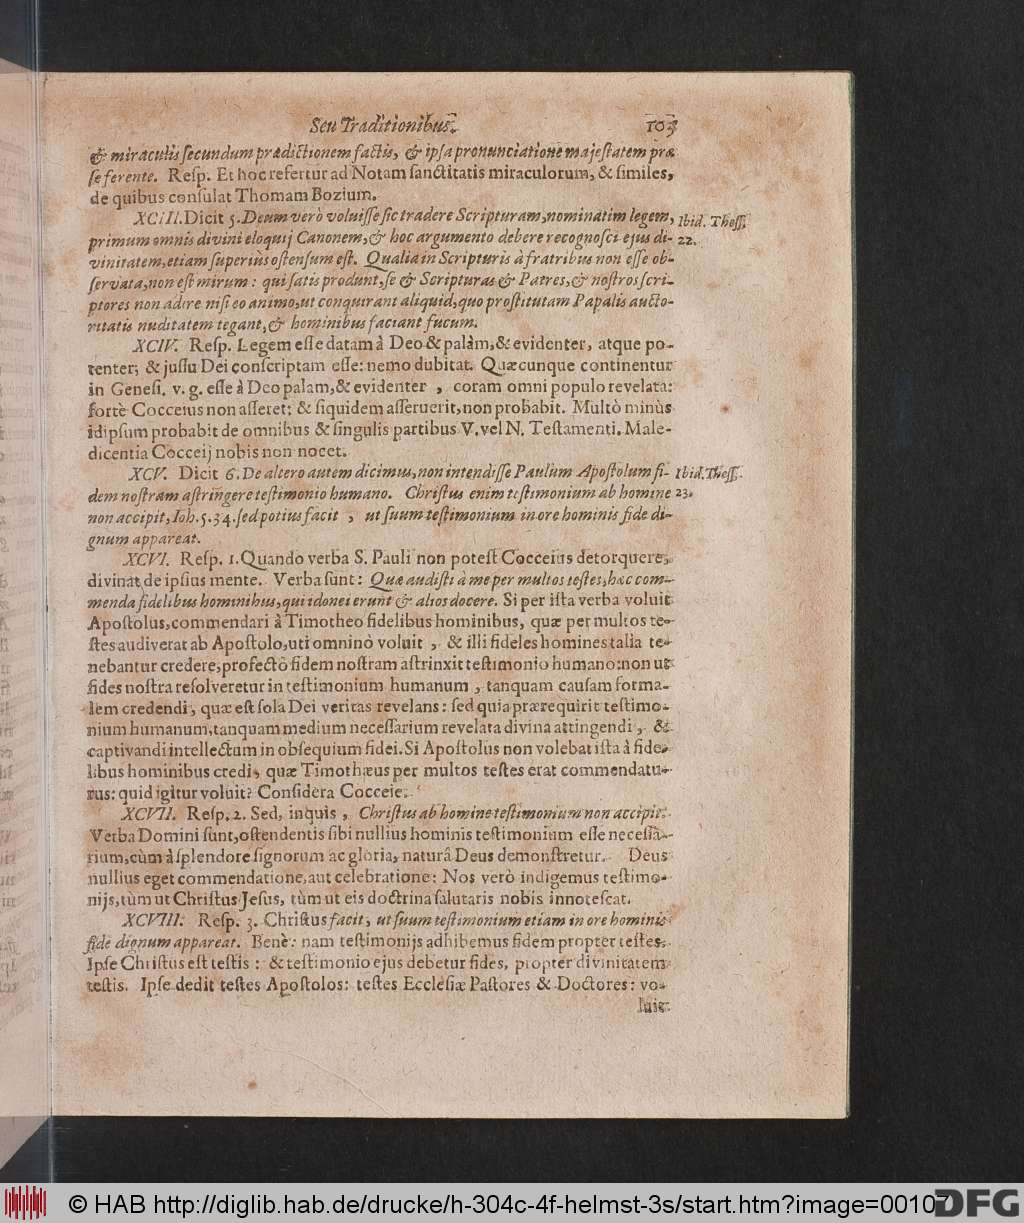 Seu Traditionibus. 103
& miraculis secundum prædictionem factis, & ipsa pronunciatione majestatem præ
se ferente. Resp. Et hoc refertur ad Notam sanctitatis miraculorum, & similes,
de quibus consulat Thomam Bozium.
XCIII. Dicit 5. Deum verò voluisse sic tradere Scripturam, nominatim legem, Ibid. Thess.
primum omnis divini eloquij Canonem, & hoc argumento debere recognosci ejus di- 22.
vinitatem, etiam superiùs ostensum est. Qualia in Scripturis à fratribus non esse ob-
servata, non est mirum: qui satis produnt, se & Scripturas & Patres, & nostros scri-
ptores non adire nisi eo animo, ut conquirant aliquid, quo prostitutam Papalis aucto-
ritatis nuditatem tegant, & hominibus faciant fucum.
XCIV. Resp. Legem esse datam à Deo & palàm, & evidenter, atque po-
tenter; & jussu Dei conscriptam esse: nemo dubitat. Quæcunque continentur
in Genesi, v. g. esse à Deo palam, & evidenter, coram omni populo revelata:
fortè Cocceius non asseret: & siquidem asseruerit, non probabit. Multò minùs
idipsum probabit de omnibus & singulis partibus V. vel N. Testamenti. Male-
dicentia Cocceij nobis non nocet.
XCV. Dicit 6. De altero autem dicimus, non intendisse Paulum Apostolum fi- Ibid. Thess.
dem nostram astringere testimonio humano. Christus enim testimonium ab homine 23.
non accipit, Ioh. 5. 34. sed potius facit, ut suum testimonium in ore hominis fide di-
gnum appareat.
XCVI. Resp. 1. Quando verba S. Pauli non potest Cocceius detorquere,
divinat de ipsius mente. Verba sunt: Quæ audisti à me per multos testes, hæc com-
menda fidelibus hominibus, qui idonei erunt & alios docere. Si per ista verba voluit
Apostolus, commendari à Timotheo fidelibus hominibus, quæ per multos te-
stes audiverat ab Apostolo, uti omninò voluit, & illi fideles homines talia te-
nebantur credere, profectò fidem nostram astrinxit testimonio humano: non ut
fides nostra resolveretur in testimonium humanum, tanquam causam forma-
lem credendi, quæ est sola Dei veritas revelans: sed quia prærequirit testimo-
nium humanum, tanquam medium necessarium revelata divina attingendi, &
captivandi intellectum in obsequium fidei. Si Apostolus non volebat ista à fide-
libus hominibus credi, quæ Timothæus per multos testes erat commendatu-
rus: quid igitur voluit? Considera Cocceie.
XCVII. Resp. 2. Sed, inquis, Christus ab homine testimonium non accipit.
Verba Domini sunt, ostendentis sibi nullius hominis testimonium esse necessa-
rium, cùm à splendore signorum ac gloria, naturâ Deus demonstretur. Deus
nullius eget commendatione, aut celebratione: Nos verò indigemus testimo-
nijs, tùm ut Christus Jesus, tùm ut eis doctrina salutaris nobis innotescat.
XCVIII. Resp. 3. Christus facit, ut suum testimonium etiam in ore hominis
fide dignum appareat. Benè: nam testimonijs adhibemus fidem propter testes.
Ipse Christus est testis: & testimonio ejus debetur fides, propter divinitatem
testis. Ipse dedit testes Apostolos: testes Ecclesiæ Pastores & Doctores: vo-
luit
© HAB http://diglib.hab.de/drucke/h-304c-4f-helmst-3s/start.htm?image=00107
DFG